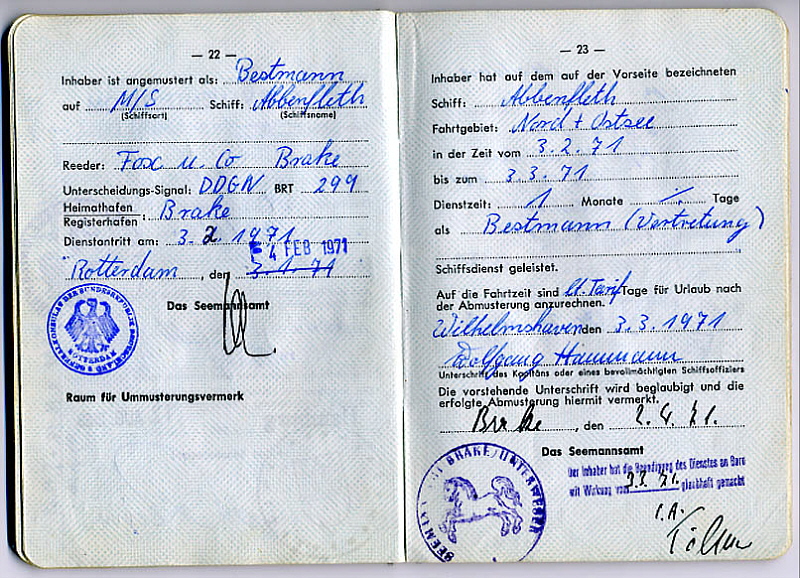 — 22 —
Inhaber ist angemustert als: Bestmann
auf M/S Schiff: Abbenfleth
(Schiffsort) (Schiffsname)
Reeder: Fox u. Co Brake
Unterscheidungs-Signal: DDGN BRT 299
Heimathafen
Registerhafen : Brake
Dienstantritt am: 3.2.1971
4 FEB 1971
Rotterdam, den 3.1.71
Das Seemannsamt
GENERALKONSULAT DER BUNDESREPUBLIK DEUTSCHLAND
ROTTERDAM
Raum für Ummusterungsvermerk
— 23 —
Inhaber hat auf dem auf der Vorseite bezeichneten
Schiff: Abbenfleth
Fahrtgebiet: Nord + Ostsee
in der Zeit vom 3.2.71
bis zum 3.3.71
Dienstzeit: 1 Monate ./. Tage
als Bestmann (Vertretung)
Schiffsdienst geleistet.
Auf die Fahrtzeit sind lt. Tarif Tage für Urlaub nach
der Abmusterung anzurechnen.
Wilhelmshaven den 3.3.1971
Wolfgang Hammann
Unterschrift des Kapitäns oder eines bevollmächtigten Schiffsoffiziers
Die vorstehende Unterschrift wird beglaubigt und die
erfolgte Abmusterung hiermit vermerkt.
Brake, den 2.4.71.
Das Seemannsamt
Der Inhaber hat die Beendigung des Dienstes an Bord
mit Wirkung vom 3.3.71. glaubhaft gemacht
I.A.
SEEMANNSAMT BRAKE/UNTERWESER